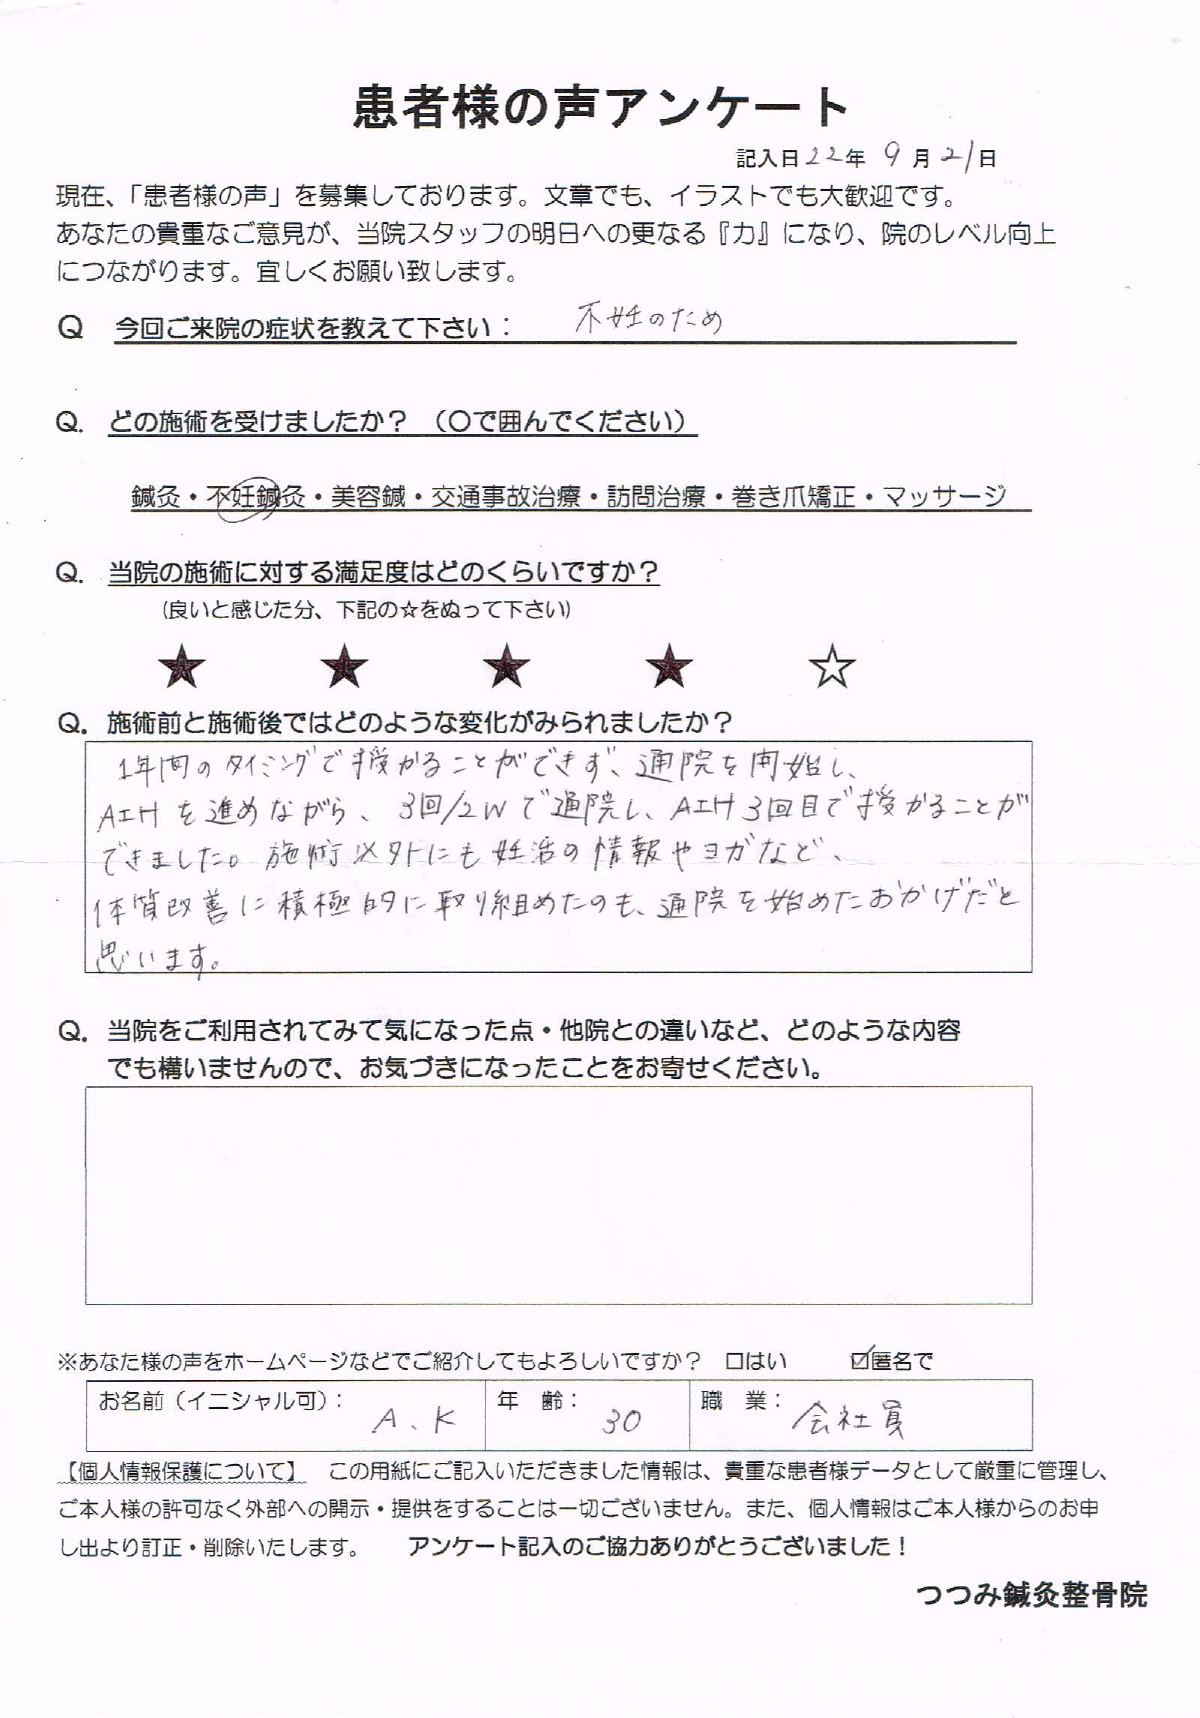 患者様の声アンケート
記入日22年 9月21日
現在、「患者様の声」を募集しております。文章でも、イラストでも大歓迎です。
あなたの貴重なご意見が、当院スタッフの明日への更なる『力』になり、院のレベル向上
につながります。宜しくお願い致します。
Q 今回ご来院の症状を教えて下さい： 不妊のため
Q. どの施術を受けましたか？（〇で囲んでください）
鍼灸・不妊鍼灸・美容鍼・交通事故治療・訪問治療・巻き爪矯正・マッサージ
Q. 当院の施術に対する満足度はどのくらいですか？
（良いと感じた分、下記の☆をぬって下さい）
★ ★ ★ ★ ☆
Q. 施術前と施術後ではどのような変化がみられましたか？
1年間のタイミングで授かることができず、通院を開始し、
AIHを進めながら、3回/2Wで通院し、AIH3回目で授かることが
できました。施術以外にも妊活の情報やヨガなど、
体質改善に積極的に取り組めたのも、通院を始めたおかげだと
思います。
Q. 当院をご利用されてみて気になった点・他院との違いなど、どのような内容
でも構いませんので、お気づきになったことをお寄せください。
※あなた様の声をホームページなどでご紹介してもよろしいですか？ □はい ☑匿名で
お名前（イニシャル可）： A、K 年 齢： 30 職 業： 会社員
【個人情報保護について】 この用紙にご記入いただきました情報は、貴重な患者様データとして厳重に管理し、
ご本人様の許可なく外部への開示・提供をすることは一切ございません。また、個人情報はご本人様からのお申
し出より訂正・削除いたします。 アンケート記入のご協力ありがとうございました！
つつみ鍼灸整骨院